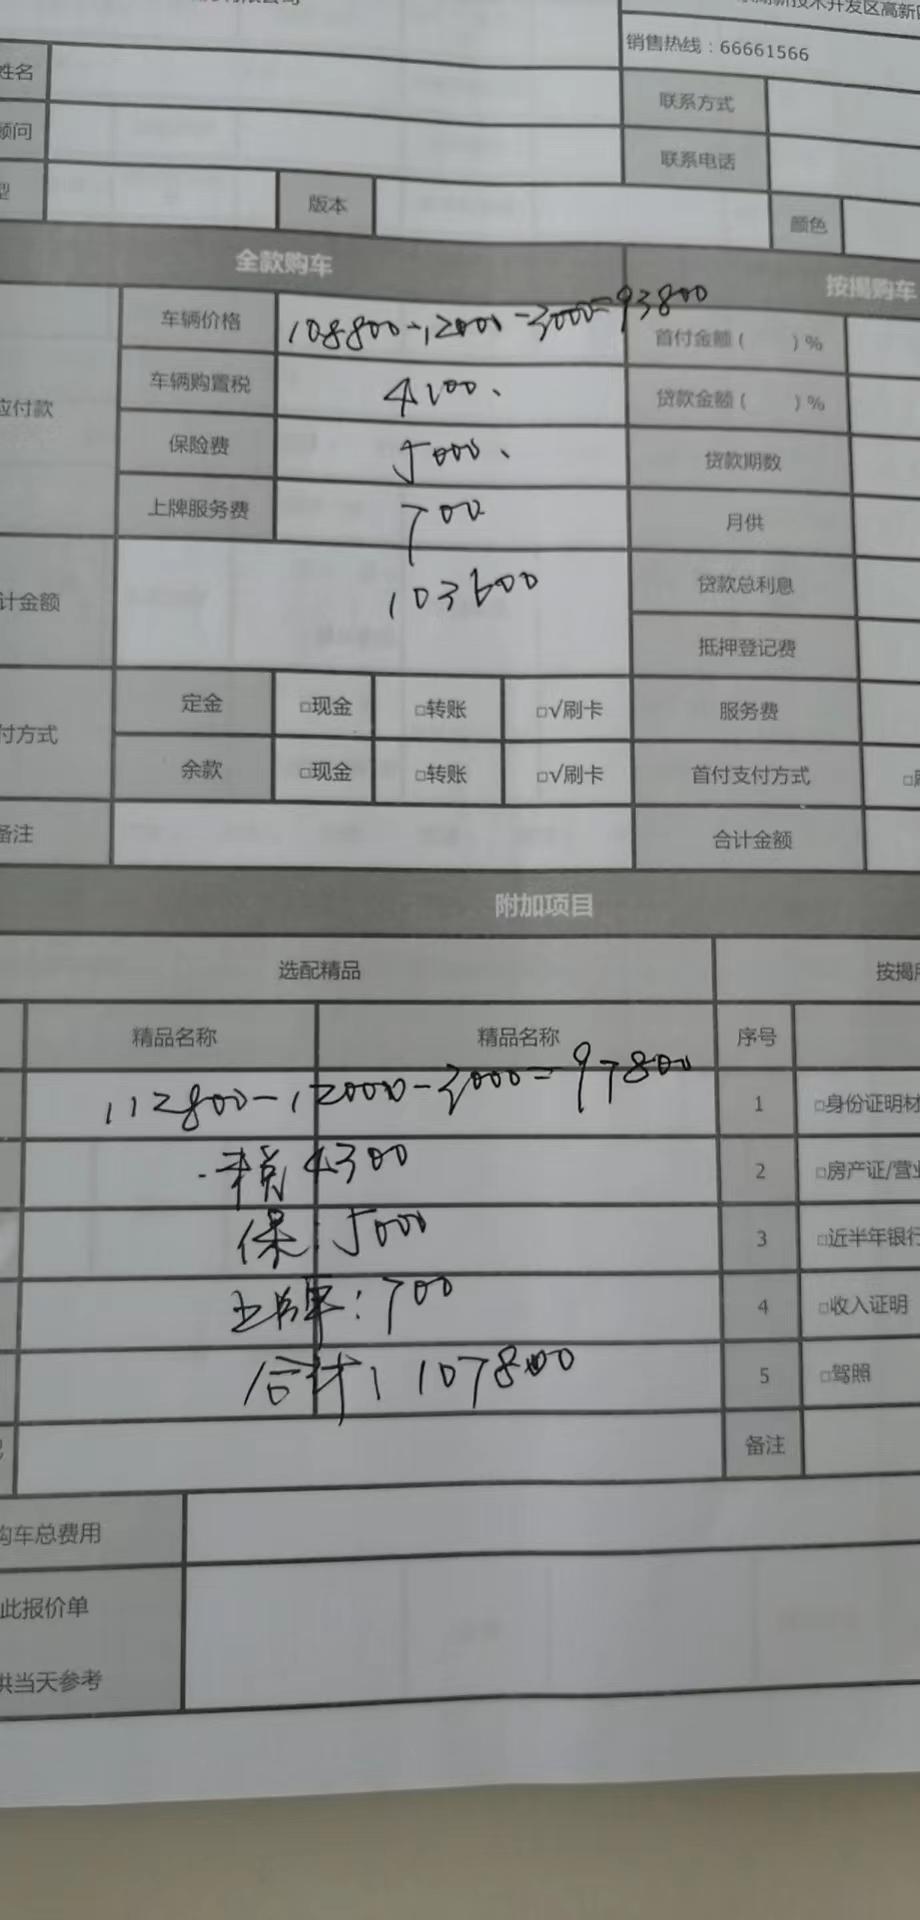 有限公司
高新技术开发区高新
销售热线：66661566
姓名
联系方式
顾问
联系电话
型 版本 颜色
全款购车 按揭购车
车辆价格 108800-12000-3000=93800 首付金额（ ）%
应付款 车辆购置税 4100、 贷款金额（ ）%
保险费 5000、 贷款期数
上牌服务费 700 月供
计金额 103600 贷款总利息
抵押登记费
付方式 定金 □现金 □转账 □√刷卡 服务费
余款 □现金 □转账 □√刷卡 首付支付方式 □
备注 合计金额
附加项目
选配精品 按揭
精品名称 精品名称 序号
112800-12000-3000=97800 1 □身份证明材
税 4300 2 □房产证/营业
保：5000 3 □近半年银行
上牌：700 4 □收入证明
合计：107800 5 □驾照
备注
购车总费用
此报价单
供当天参考